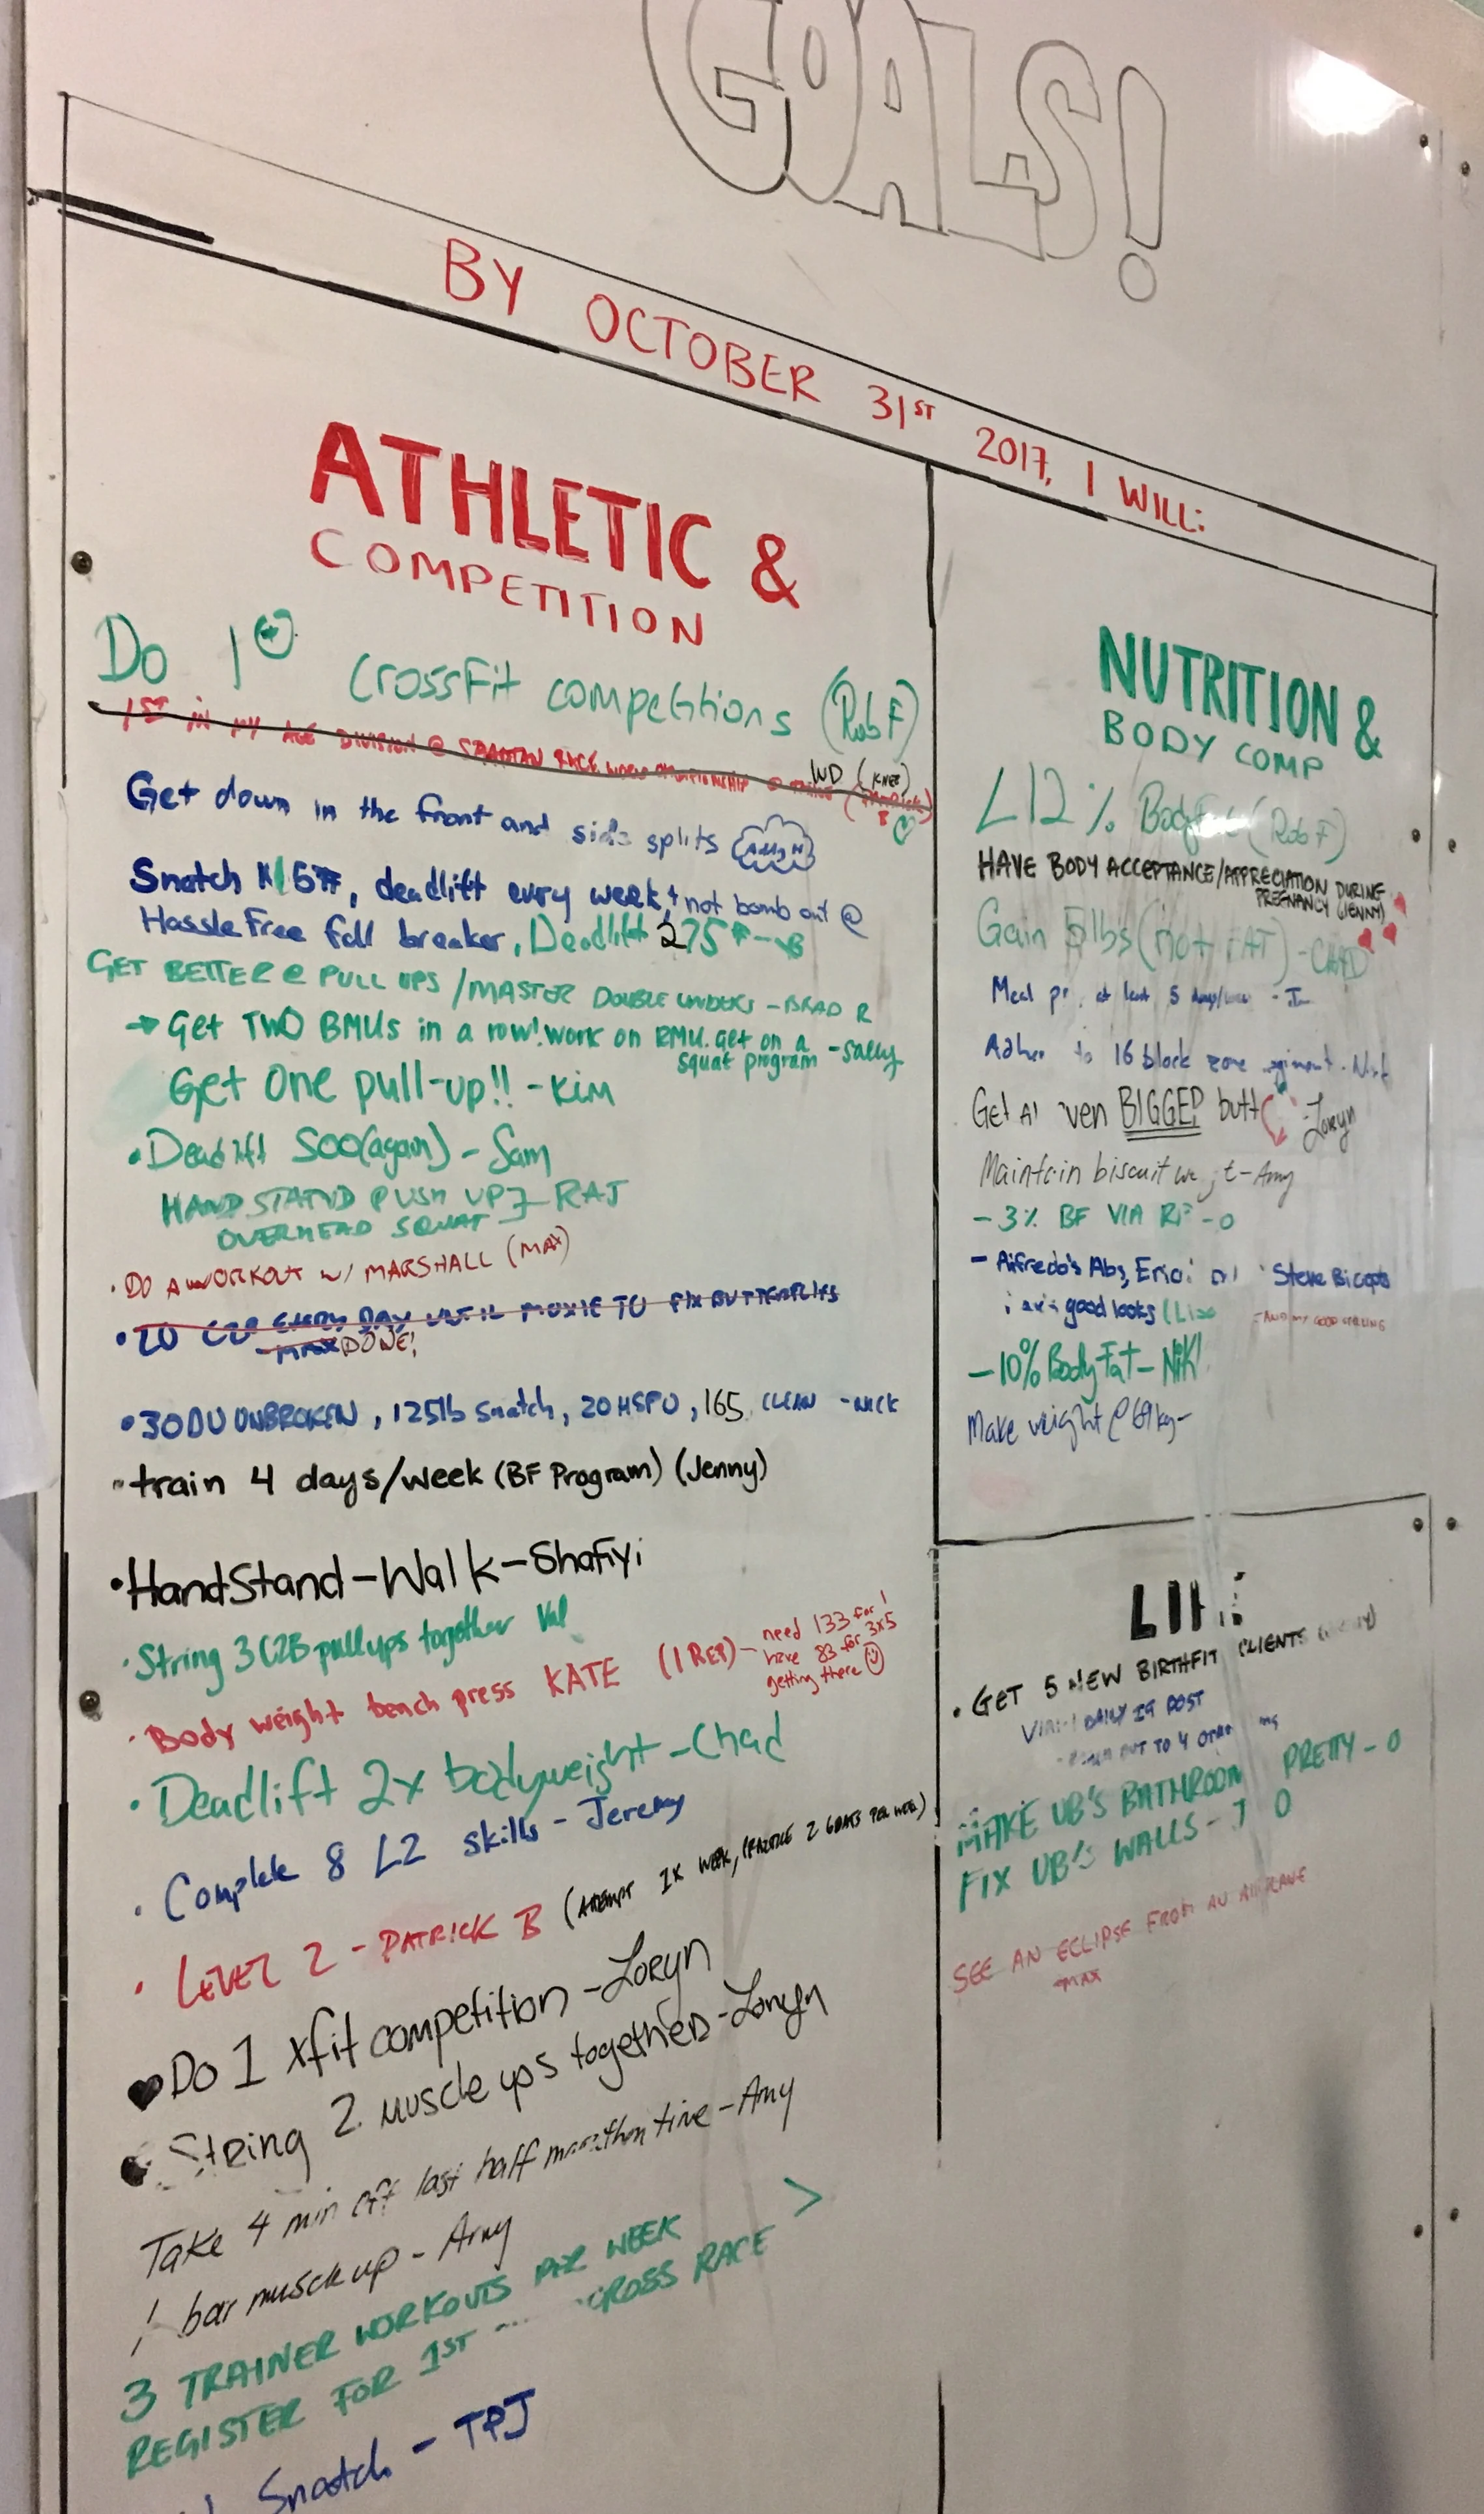 GOALS!
BY OCTOBER 31ST 2017, I WILL:
ATHLETIC &
COMPETITION
Do 1 CrossFit competitions (Rob F)
1ST IN MY AGE DIVISION @ SPARTAN RACE WORLD CHAMPIONSHIP
WD (KNEE)
Get down in the front and side splits
Snatch deadlift every week + not bomb out @
Hassle Free fall breaker, Deadlift 275#
GET BETTER @ PULL UPS / MASTER DOUBLE UNDERS - BRAD R
→ Get TWO BMUs in a row! work on RMU. get on a
squat program - Sally
Get One pull-up!! - Kim
• Deadlift 500 (again) - Sam
HAND STAND PUSH UP ] - RAJ
OVERHEAD SQUAT
• DO A WORKOUT W/ MARSHALL (MAX)
• 20 C2B EVERY DAY UNTIL MOXIE TO FIX BUTTERFLIES
- MAX DONE!
• 30 DU UNBROKEN, 125lb Snatch, 20 HSPU, 165 CLEAN - NICK
• train 4 days/week (BF Program) (Jenny)
• HandStand-Walk-Shafiyi
• String 3 C2B pullups together Val
• Body weight bench press KATE (1 REP) - need 133 for 1
have 83 for 3x5
getting there
• Deadlift 2x bodyweight - Chad
• Complete 8 L2 skills - Jeremy
• LEVEL 2 - PATRICK B (ATTEMPT 1X WEEK, (PRACTICE 2 GOATS PER WEEK)
Do 1 xfit competition - Loryn
String 2 muscle ups together - Loryn
Take 4 min off last half marathon time - Amy
1 bar muscle up - Amy
3 TRAINER WORKOUTS PER WEEK >
REGISTER FOR 1ST CROSS RACE
Snatch - TPJ
NUTRITION &
BODY COMP
<12% Bodyfat (Rob F)
HAVE BODY ACCEPTANCE/APPRECIATION DURING
PREGNANCY (JENNY)
Gain 5lbs (not FAT) - CHAD
Meal at least 5 days/week
to 16 block zone
Get BIGGER butt - Loryn
Maintain biscuit - Amy
- 3% BF VIA - O
- Alfredo's Abs, Steve Biceps
good looks
- AND MY GOOD
- 10% Body Fat - Niki
Make weight @ 69kg -
LIFE
• GET 5 NEW BIRTHFIT CLIENTS
DAILY IG POST
OUT TO 4
MAKE UB'S BATHROOM PRETTY - O
FIX UB'S WALLS - O
SEE AN ECLIPSE FROM AN AIRPLANE
- MAX